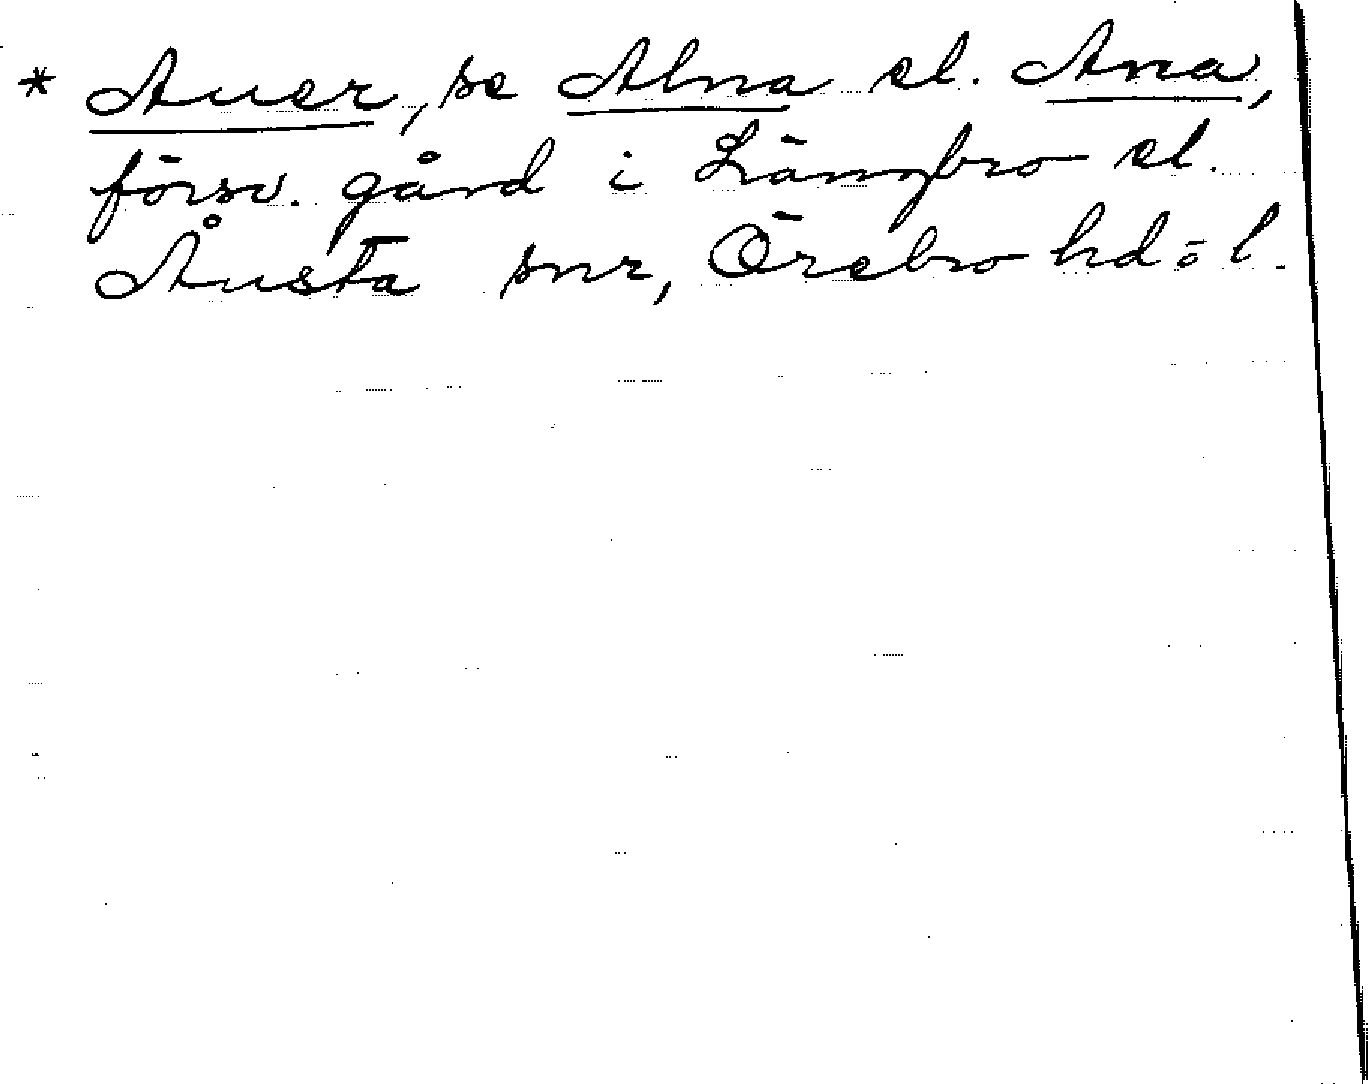 * Auer, se Alna el. Ana,
försv. gård i Längbro el.
Ånsta snr, Örebro hd ö l.